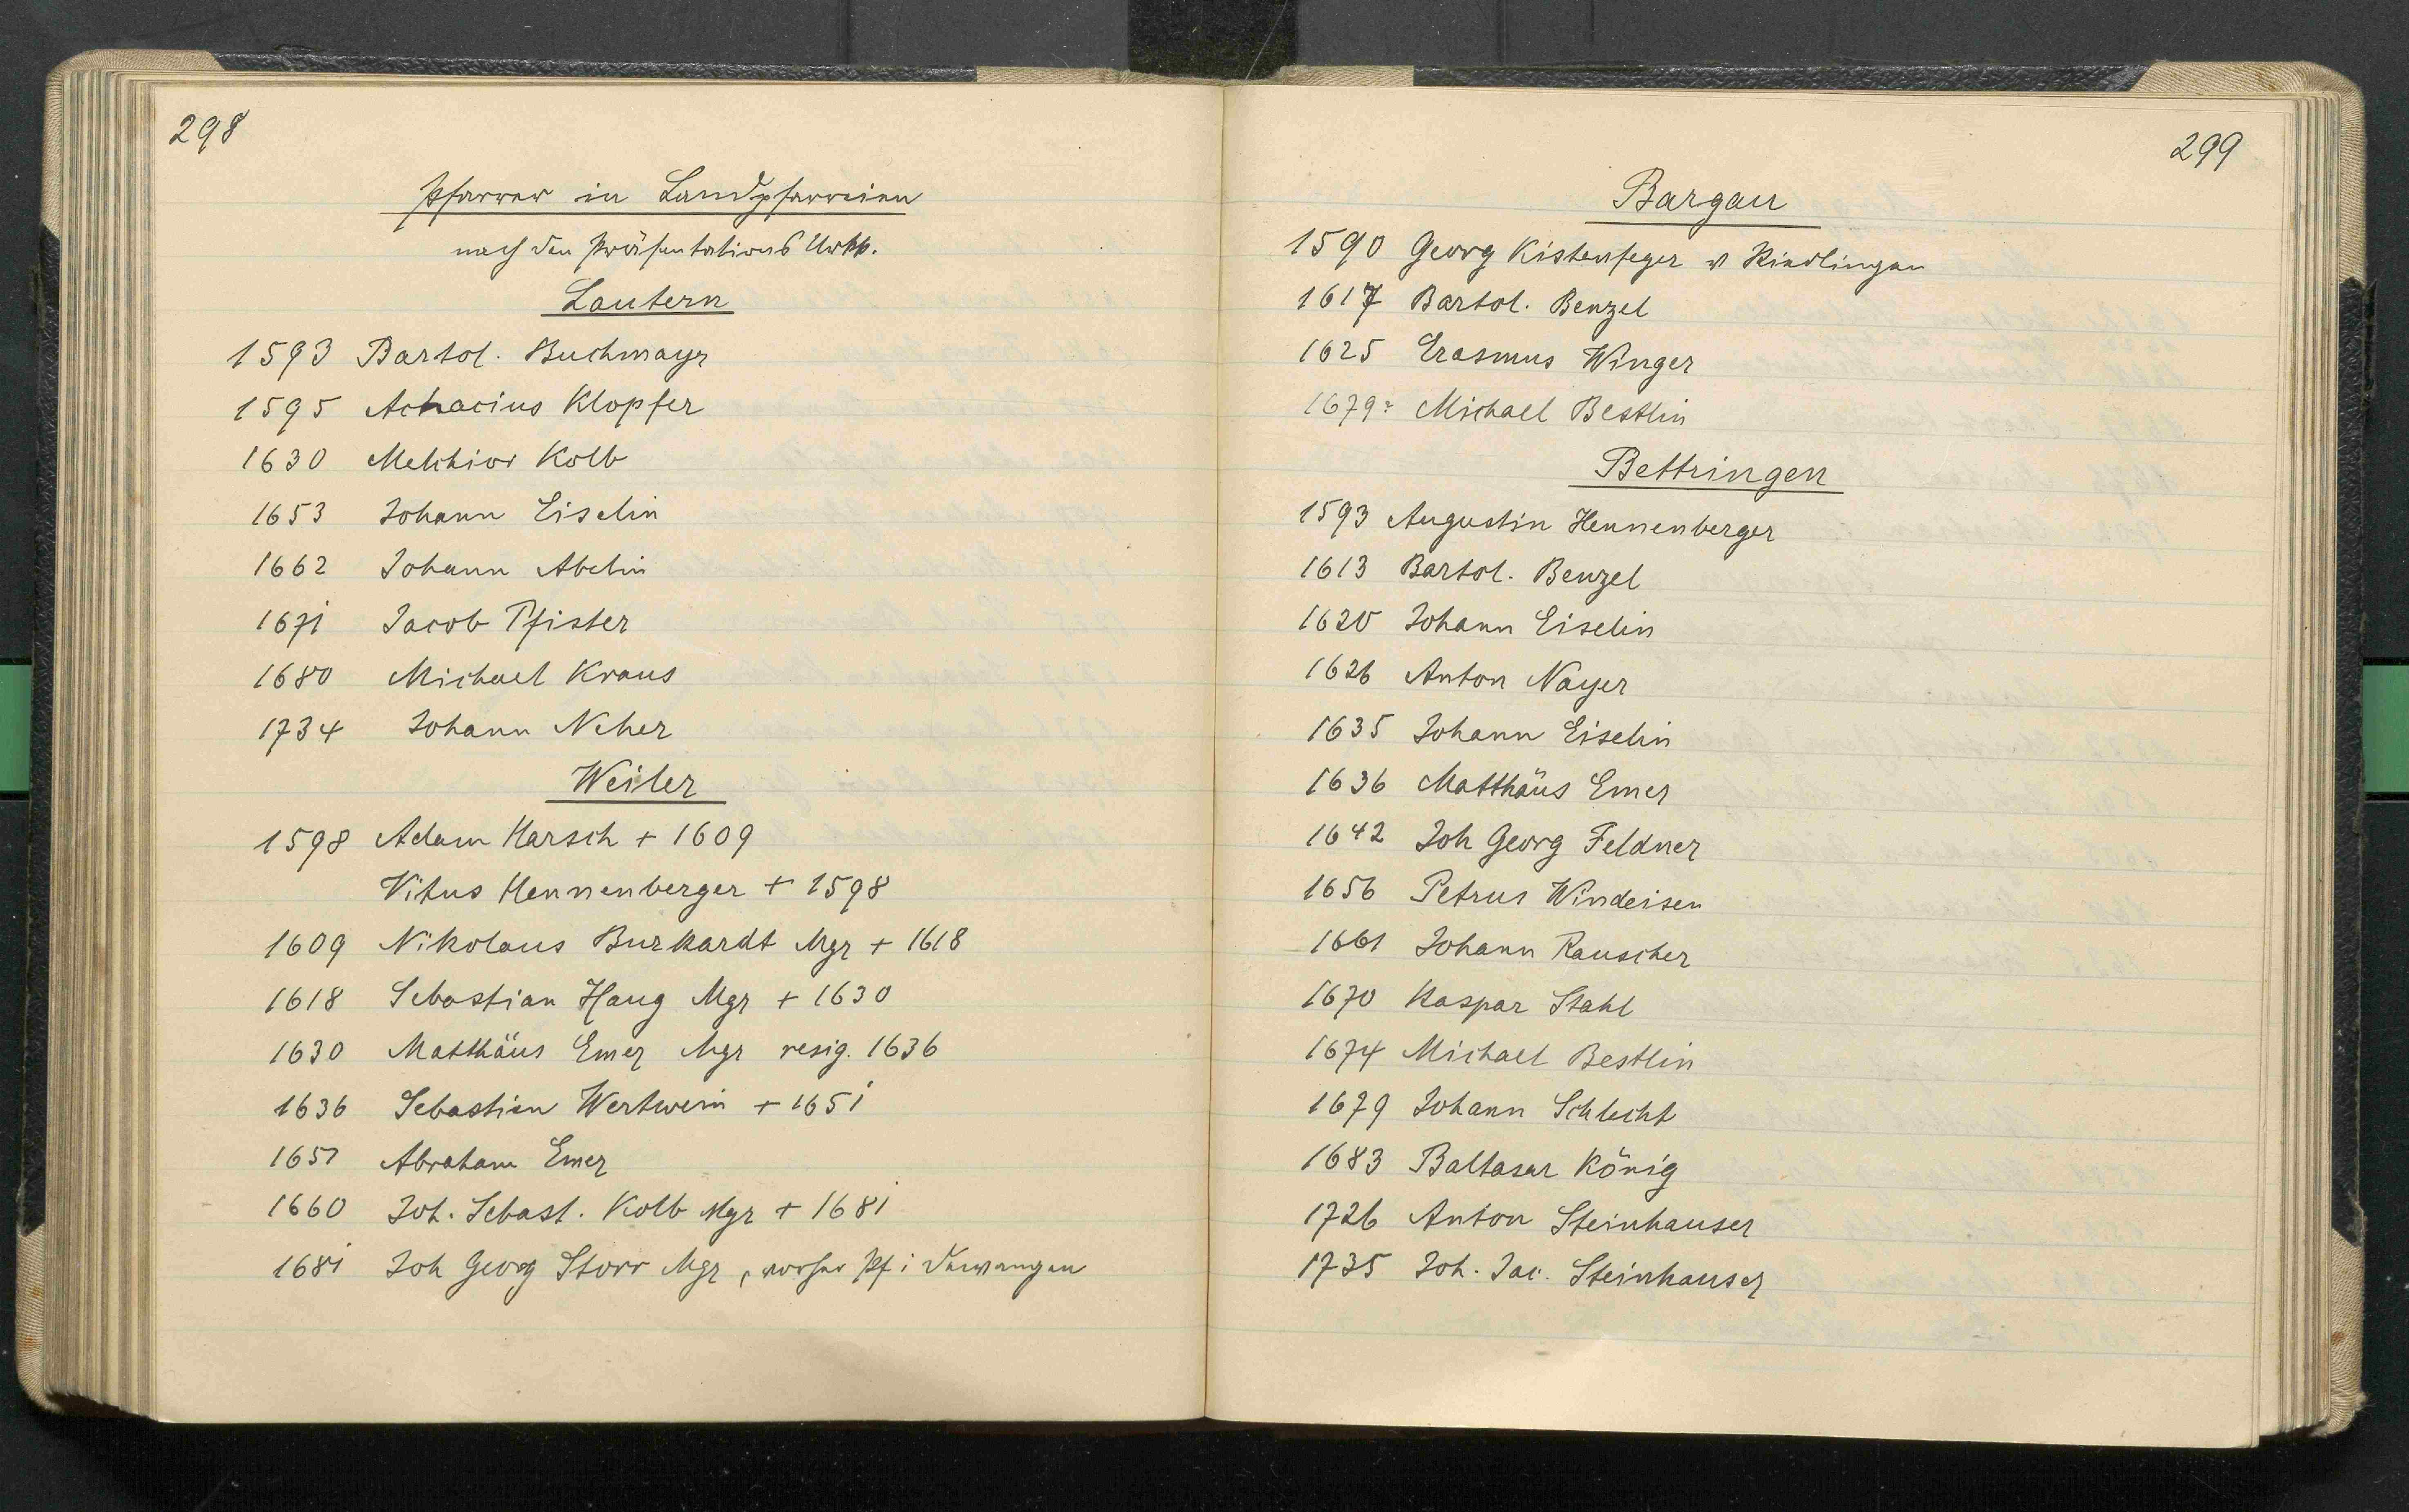 298
Pfarrer in Landpfarreien
nach den Präsentations Urkk.
Lautern
1593 Bartol. Buchmayr
1595 Achacius Klopfer
1630 Melchior Kolb
1653 Johann Eiselin
1662 Johann Abelin
1671 Jacob Pfister
1680 Michael Kraus
1734 Johann Neher
Weiler
1598 Adam Harsch + 1609
Vitus Hennenberger + 1598
1609 Nikolaus Burkardt Mgr + 1618
1618 Sebastian Haug Mgr + 1630
1630 Matthäus Emer Mgr resig. 1636
1636 Sebastian Wertwein + 1651
1651 Abraham Emer
1660 Joh. Sebast. Kolb Mgr + 1681
1681 Joh Georg Storr Mgr, vorher Pf i Dewangen
299
Bargau
1590 Georg Kistenfeger v Riedlingen
1617 Bartol. Benzel
1625 Erasmus Winger
1679? Michael Bestlin
Bettringen
1593 Augustin Hennenberger
1613 Bartol. Benzel
1620 Johann Eiselin
1626 Anton Nayer
1635 Johann Eiselin
1636 Matthäus Emer
1642 Joh Georg Feldner
1656 Petrus Windeisen
1661 Johann Rauscher
1670 Kaspar Stahl
1674 Michael Bestlin
1679 Johann Schlecht
1683 Baltasar König
1726 Anton Steinhauser
1735 Joh. Jac. Steinhauser